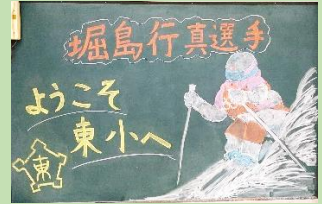 堀島行真選手
ようこそ
東小へ
東